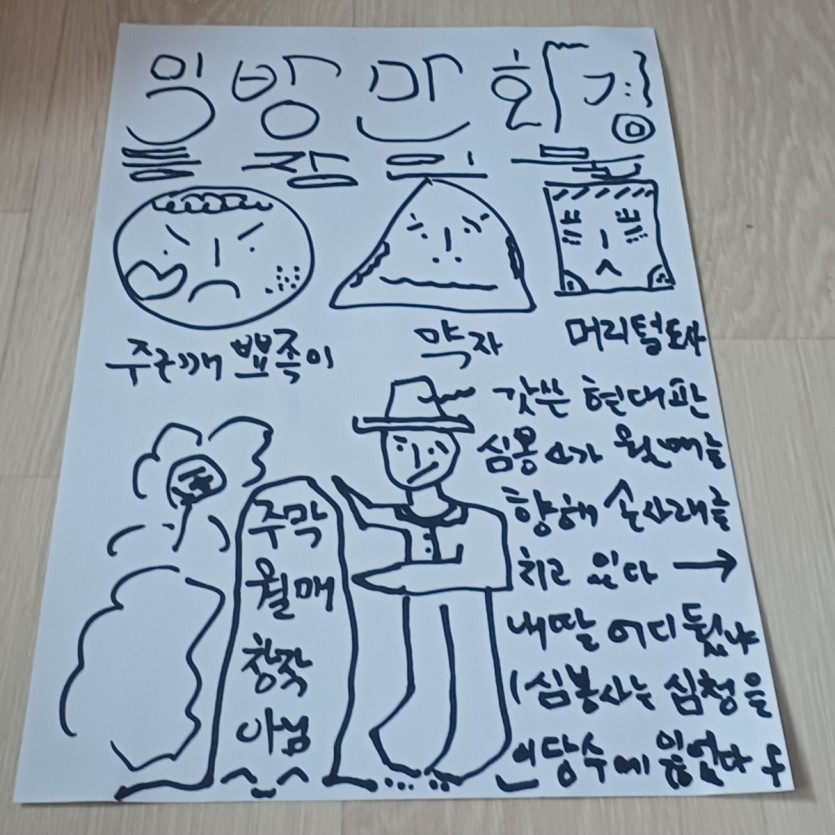 일방만화
등장인물
주근깨 뾰족이
약자
머리털도사
갓쓴 현대판
심봉사가 월매를
향해 손사래를
치고 있다 →
내딸 어디뒀냐
(심봉사는 심청을
인당수에 잃었다
주막
월매
창작
아님